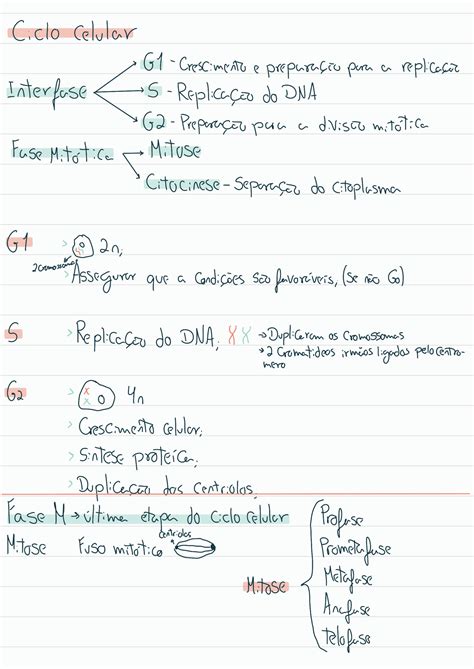 Ciclo Celular
Interfase → G1 - Crescimento e preparação para a replicação
→ S - Replicação do DNA
→ G2 - Preparação para a divisão mitótica
Fase Mitótica → Mitose
→ Citocinese - Separação do citoplasma
G1 > 2n;
2 cromossomas
> Assegurar que a condições são favoráveis, (se não G0)
S > Replicação do DNA; X X → Duplicaram os cromossomas
→ 2 Cromatídeos irmãos ligados pelo centrómero
G2 > 4n
> Crescimento celular;
> Síntese proteica;
> Duplicação dos centríolos.
Fase M → última etapa do ciclo celular
centríolos
Mitose Fuso mitótico
Mitose
Profase
Prometafase
Metafase
Anafase
Telofase